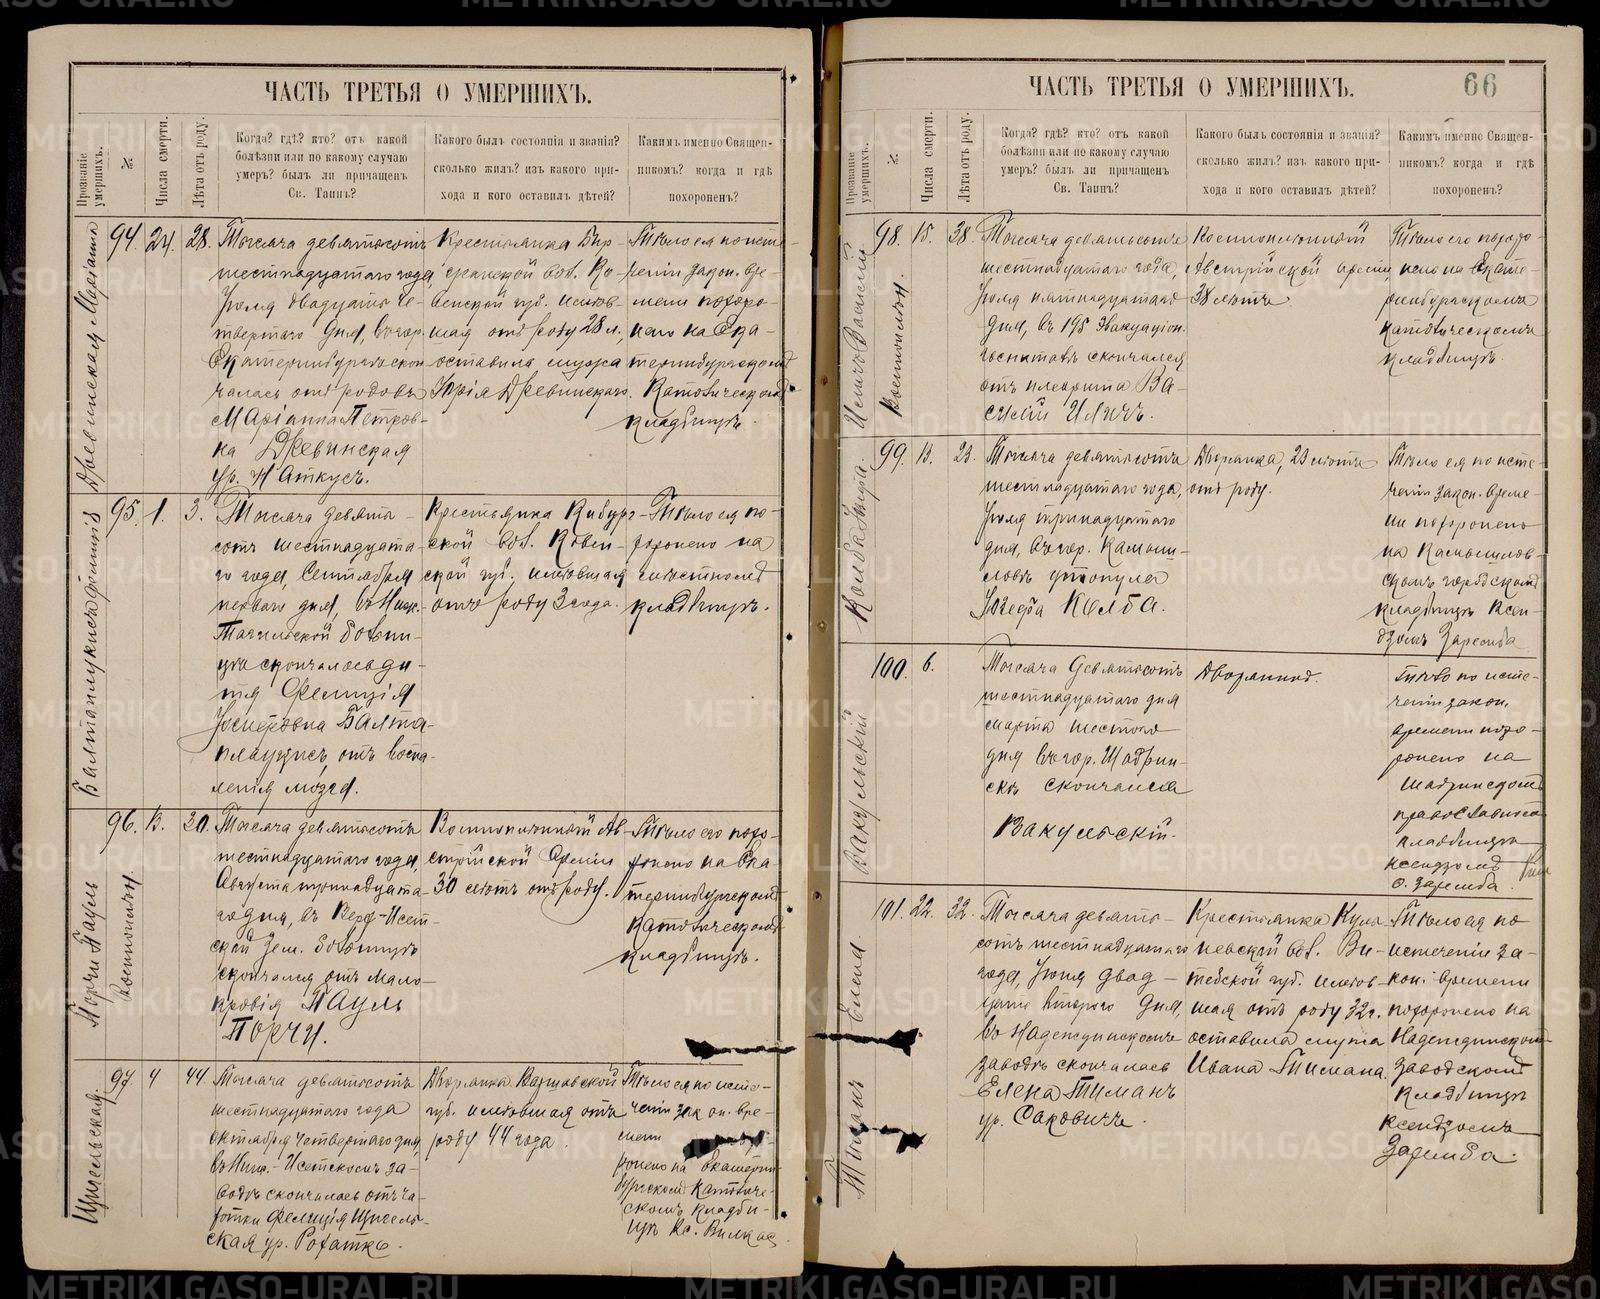 ЧАСТЬ ТРЕТЬЯ О УМЕРШИХЪ.
Прозваніе умершихъ.
№
Числа смерти.
Лѣта отъ роду.
Когда? гдѣ? кто? отъ какой
болѣзни или по какому случаю
умеръ? былъ ли причащенъ
Св. Таинъ?
Какого былъ состоянія и званія?
сколько жилъ? изъ какого при-
хода и кого оставилъ дѣтей?
Какимъ именно Священ-
никомъ? когда и гдѣ
похороненъ?
Древинская Маріанна
94.
24.
28.
Тысяча девятьсотъ
шестнадцатаго года,
Іюля двадцать че-
твертаго дня, въ гор.
Екатеринбургѣ скон-
чалась отъ родовъ
Маріанна Петров-
на Древинская
ур. Наткусъ.
Крестьянка Бир-
жанской вол. Ко-
венской губ. имѣв-
шая отъ роду 28 л.,
оставила мужа
Юрія Древинскаго.
Тѣло ея по исте-
ченіи закон. вре-
мени похоро-
нено на Ека-
теринбургскомъ
Католическомъ
кладбищѣ.
95.
1.
3.
Тысяча девять-
сотъ шестнадцата-
го года, Сентября
перваго дня, въ Ниж.
Тагильской больни-
цѣ скончалось ди-
тя Фелиція
Іосифовна Балта-
плаукисъ, отъ воспа-
ленія мозга.
Крестьянка
ской вол. Ковен-
ской губ. имѣвшая
отъ роду 3 года.
Тѣло ея по-
хоронено на
мѣстномъ
кладбищѣ.
Порчи Пауль
военноплѣн.
96.
13.
30.
Тысяча девятьсотъ
шестнадцатаго года,
Августа тринадцата-
го дня, въ Верх-Исет-
ской Зем. больницѣ
скончался отъ мало-
кровія Пауль
Порчи.
Военноплѣнный Ав-
стрійской Арміи
30 лѣтъ отъ роду.
Тѣло его похо-
ронено на Ека-
теринбургскомъ
Католическомъ
кладбищѣ.
97
4
44.
Тысяча девятьсотъ
шестнадцатаго года
октября четвертаго дня,
въ Ниж.-Исетскомъ за-
водѣ скончалась отъ ча-
хотки Фелиція
ская ур. Рохатко.
Дворянка Варшавской
губ. имѣвшая отъ
роду 44 года.
Тѣло ея по исте-
ченіи закон. вре-
мени похо-
ронено на Екатерин-
бургскомъ Католиче-
скомъ кладби-
щѣ Кс.
ЧАСТЬ ТРЕТЬЯ О УМЕРШИХЪ.
66
Прозваніе умершихъ.
№
Числа смерти.
Лѣта отъ роду.
Когда? гдѣ? кто? отъ какой
болѣзни или по какому случаю
умеръ? былъ ли причащенъ
Св. Таинъ?
Какого былъ состоянія и званія?
сколько жилъ? изъ какого при-
хода и кого оставилъ дѣтей?
Какимъ именно Священ-
никомъ? когда и гдѣ
похороненъ?
Василій
военноплѣн.
98.
15.
38.
Тысяча девятьсотъ
шестнадцатаго года,
Іюля пятнадцатаго
дня, въ 198 Эвакуаціон.
госпиталѣ скончался
отъ плеврита Ва-
силій Иличъ.
Военноплѣнный
Австрійской арміи,
38 лѣтъ
Тѣло его похоро-
нено на Екате-
ринбургскомъ
католическомъ
кладбищѣ.
Колба Юзефа.
99.
13.
23.
Тысяча девятьсотъ
шестнадцатаго года,
Іюля тринадцатаго
дня, въ гор. Камыш-
ловѣ утонула
Юзефа Колба.
Дворянка, 23 лѣтъ
отъ роду.
Тѣло ея по исте-
ченіи закон. време-
ни похоронено
на Камышлов-
скомъ городскомъ
кладбищѣ Ксен-
дзомъ Заремба
Вакульскій
100.
6.
Тысяча девятьсотъ
шестнадцатаго дня
марта шестого
дня въ гор. Шадрин-
скѣ скончался
Вакульскій.
Дворянинъ.
Тѣло по исте-
ченіи закон.
времени похо-
ронено на
Шадринскомъ
православномъ
кладбищѣ
ксендзомъ
о. Заремба.
Тиманъ Елена.
101.
22.
32.
Тысяча девять-
сотъ шестнадцатаго
года, Іюля двад-
цать второго дня,
въ Надеждинскомъ
заводѣ скончалась
Елена Тиманъ
ур. Саковичъ.
Крестьянка
невской вол. Ви-
тебской губ. имѣв-
шая отъ роду 32 г.
оставила мужа
Ивана Тимана.
Тѣло ея по
истеченіи за-
кон. времени
похоронено на
Надеждинскомъ
заводскомъ
Кладбищѣ
ксендзомъ
Заремба.
METRIKI.GASO-URAL.RU